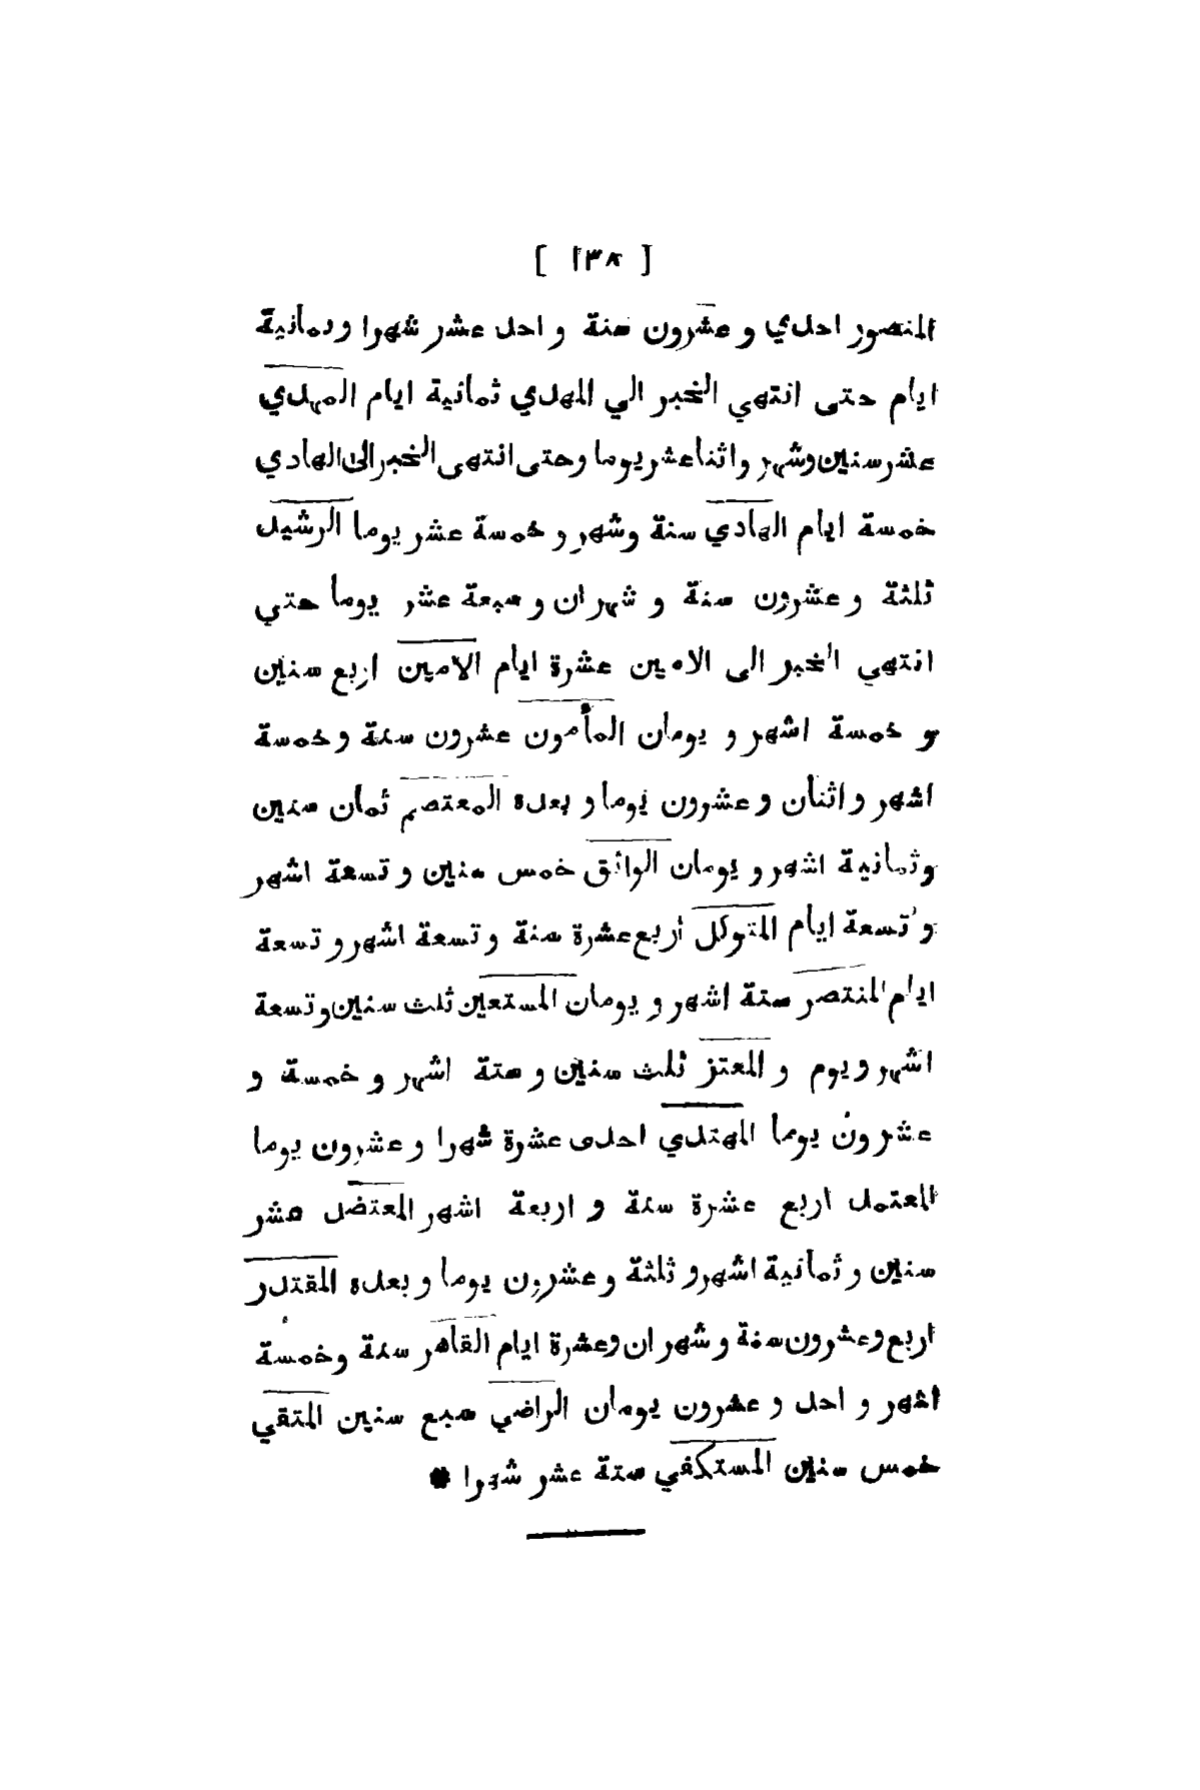 [ ١٣٨ ]
المنصور احدي و عشرون سنة و احد عشر شهرا وثمانية
ايام حتى انتهي الخبر الي المهدي ثمانية ايام المهدي
عشر سنين وشهر و اثنا عشر يوما وحتى انتهى الخبر الى الهادي
خمسة ايام الهادي سنة وشهر و خمسة عشر يوما الرشيد
ثلثة و عشرون سنة و شهران و سبعة عشر يوما حتي
انتهي الخبر الى الامين عشرة ايام الامين اربع سنين
و خمسة اشهر و يومان المأمون عشرون سنة و خمسة
اشهر و اثنان و عشرون يوما و بعده المعتصم ثمان سنين
وثمانية اشهر و يومان الواثق خمس سنين و تسعة اشهر
و تسعة ايام المتوكل اربع عشرة سنة و تسعة اشهر و تسعة
ايام المنتصر ستة اشهر و يومان المستعين ثلث سنين و تسعة
اشهر و يوم و المعتز ثلث سنين و ستة اشهر و خمسة و
عشرون يوما المهتدي احدى عشرة شهرا و عشرون يوما
المعتمد اربع عشرة سنة و اربعة اشهر المعتضد عشر
سنين و ثمانية اشهر و ثلثة و عشرون يوما و بعده المقتدر
اربع و عشرون سنة و شهران و عشرة ايام القاهر سنة و خمسة
اشهر و احد و عشرون يومان الراضي سبع سنين المتقي
خمس سنين المستكفي ستة عشر شهرا *